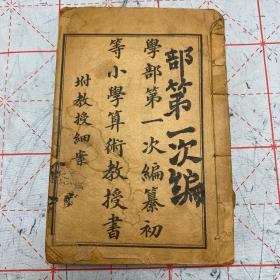 部第一次編
學部第一次編纂初
等小學算術教授書
坿教授細案